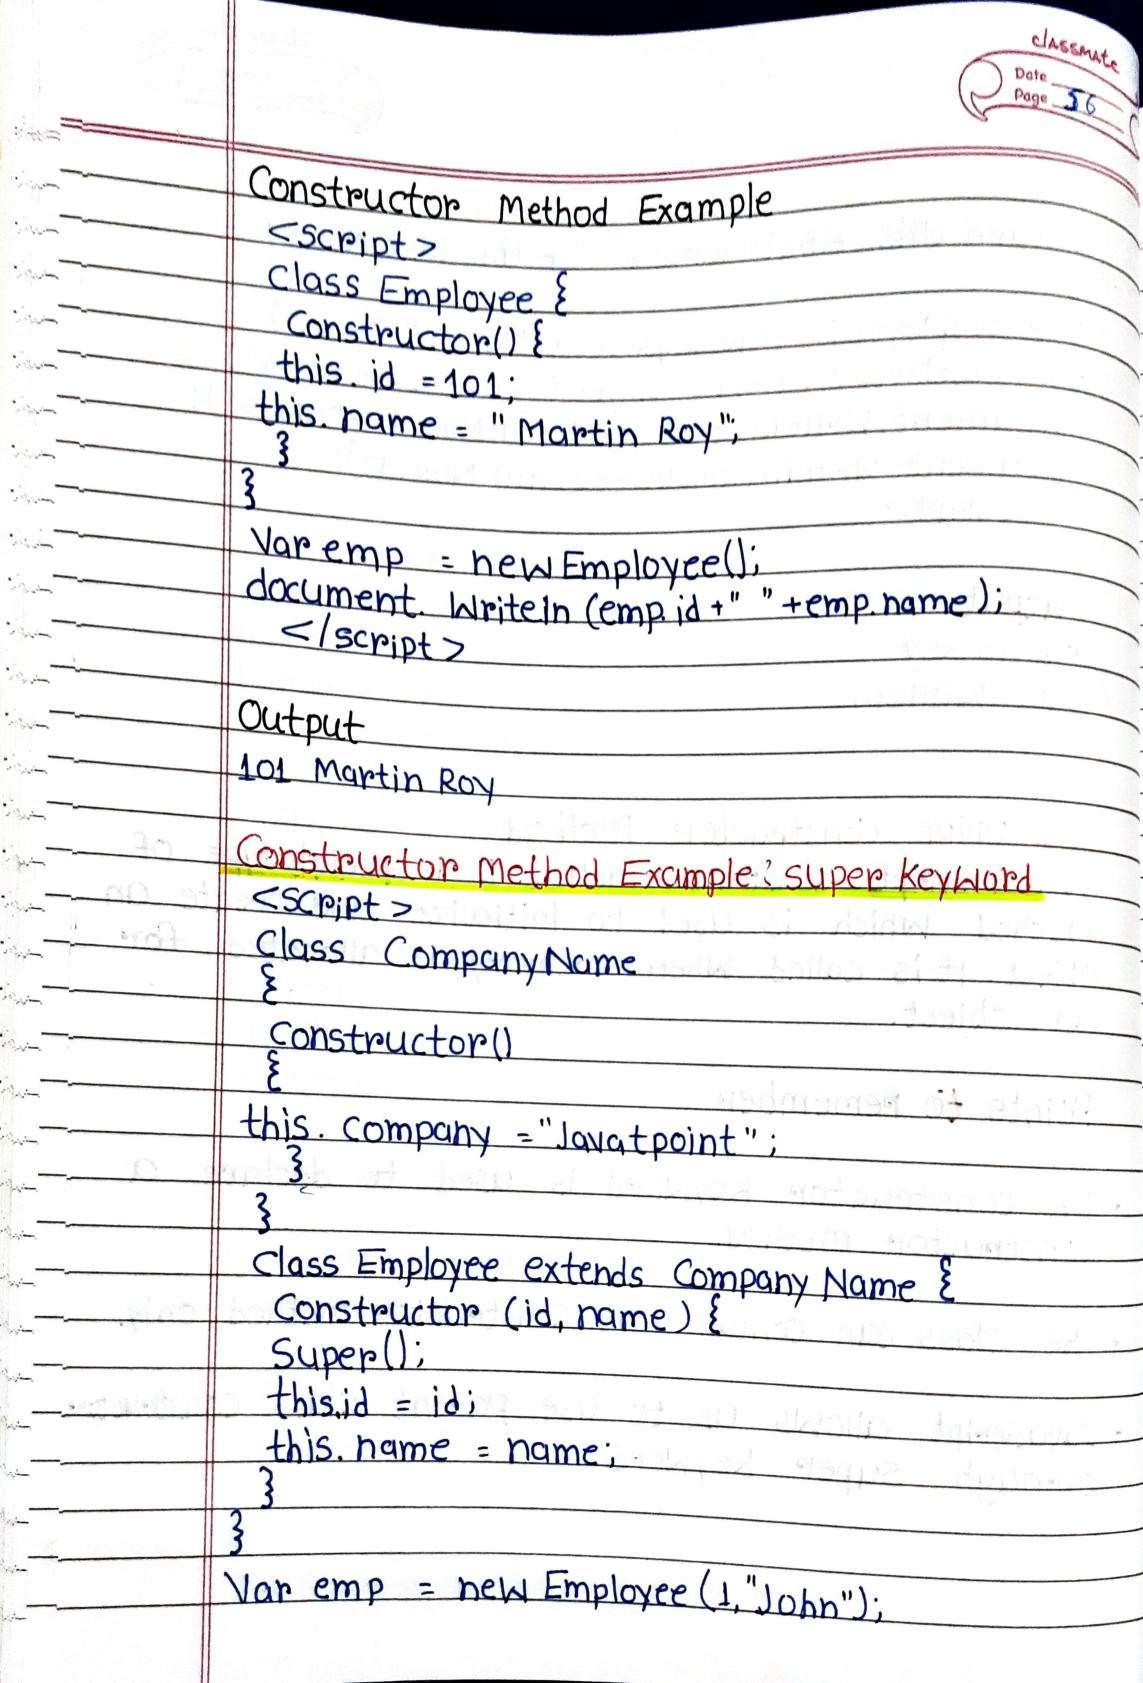 classmate
Date
Page 56
Constructor Method Example
<script>
Class Employee {
Constructor() {
this. id = 101;
this. name = "Martin Roy";
}
}
Var emp = new Employee();
document. Writeln (emp.id+" "+emp.name);
</script>
Output
101 Martin Roy
Constructor Method Example: super keyword
<script>
Class CompanyName
{
Constructor()
{
this. company = "Javatpoint";
}
}
Class Employee extends Company Name {
Constructor (id, name) {
Super();
this.id = id;
this. name = name;
}
}
Var emp = new Employee (1,"John");